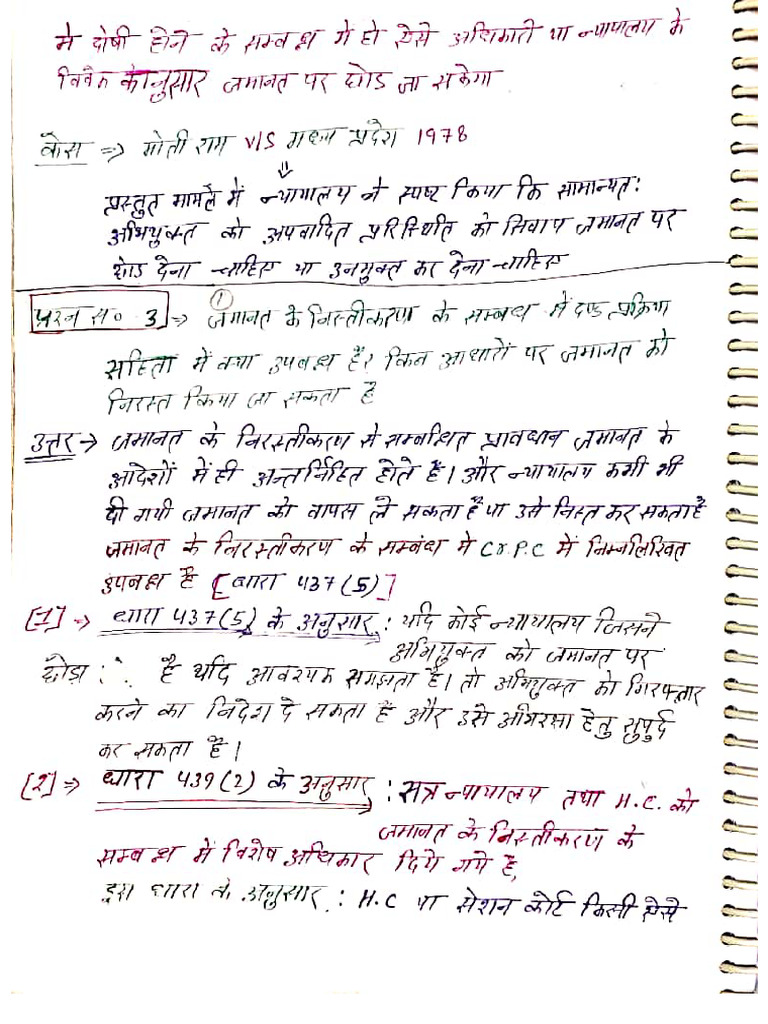 मे दोषी होने के सम्बन्ध में हो ऐसे अधिकारी या न्यायालय के
विवेक केानुसार जमानत पर छोड जा सकेगा
केस ⇒ मोती राम V/S मध्य प्रदेश 1978
प्रस्तुत मामले में न्यायालय ने स्पष्ट किया कि सामान्यत:
अभियुक्त को अपवादित परिस्थिति को सिवाय जमानत पर
छोड देना चाहिए या उन्मुक्त कर देना चाहिए
प्रश्न स० 3 ⇒ ① जमानत के निस्तीकरण के सम्बन्ध में दण्ड प्रक्रिया
सहिता में क्या उपबन्ध है? किन आधारों पर जमानत को
निरस्त किया जा सकता है
उत्तर → जमानत के निरस्तीकरण से सम्बन्धित प्रावधान जमानत के
आदेशों में ही अन्तर्निहित होते है। और न्यायालय कभी भी
दी गयी जमानत को वापस ले सकता है या उसे निस्त कर सकता है
जमानत के निरस्तीकरण के सम्बंध मे Cr.P.C में निम्नलिखित
उपबन्ध है [धारा 437(5)]
[1] ⇒ धारा 437(5) के अनुसार : यदि कोई न्यायालय जिसने
अभियुक्त को जमानत पर
छोड़ा ∴ है यदि आवश्यक समझता है। तो अभियुक्त को गिरफ्तार
करने का निदेश दे सकता है और उसे अभिरक्षा हेतु सुपुर्द
कर सकता है।
[2] ⇒ धारा 439(2) के अनुसार : सत्र न्यायालय तथा H.C. को
जमानत के निस्तीकरण के
सम्बन्ध में विशेष अधिकार दिये गये है,
इस धारा के अनुसार : H.C या सेशन कोर्ट किसी ऐसे